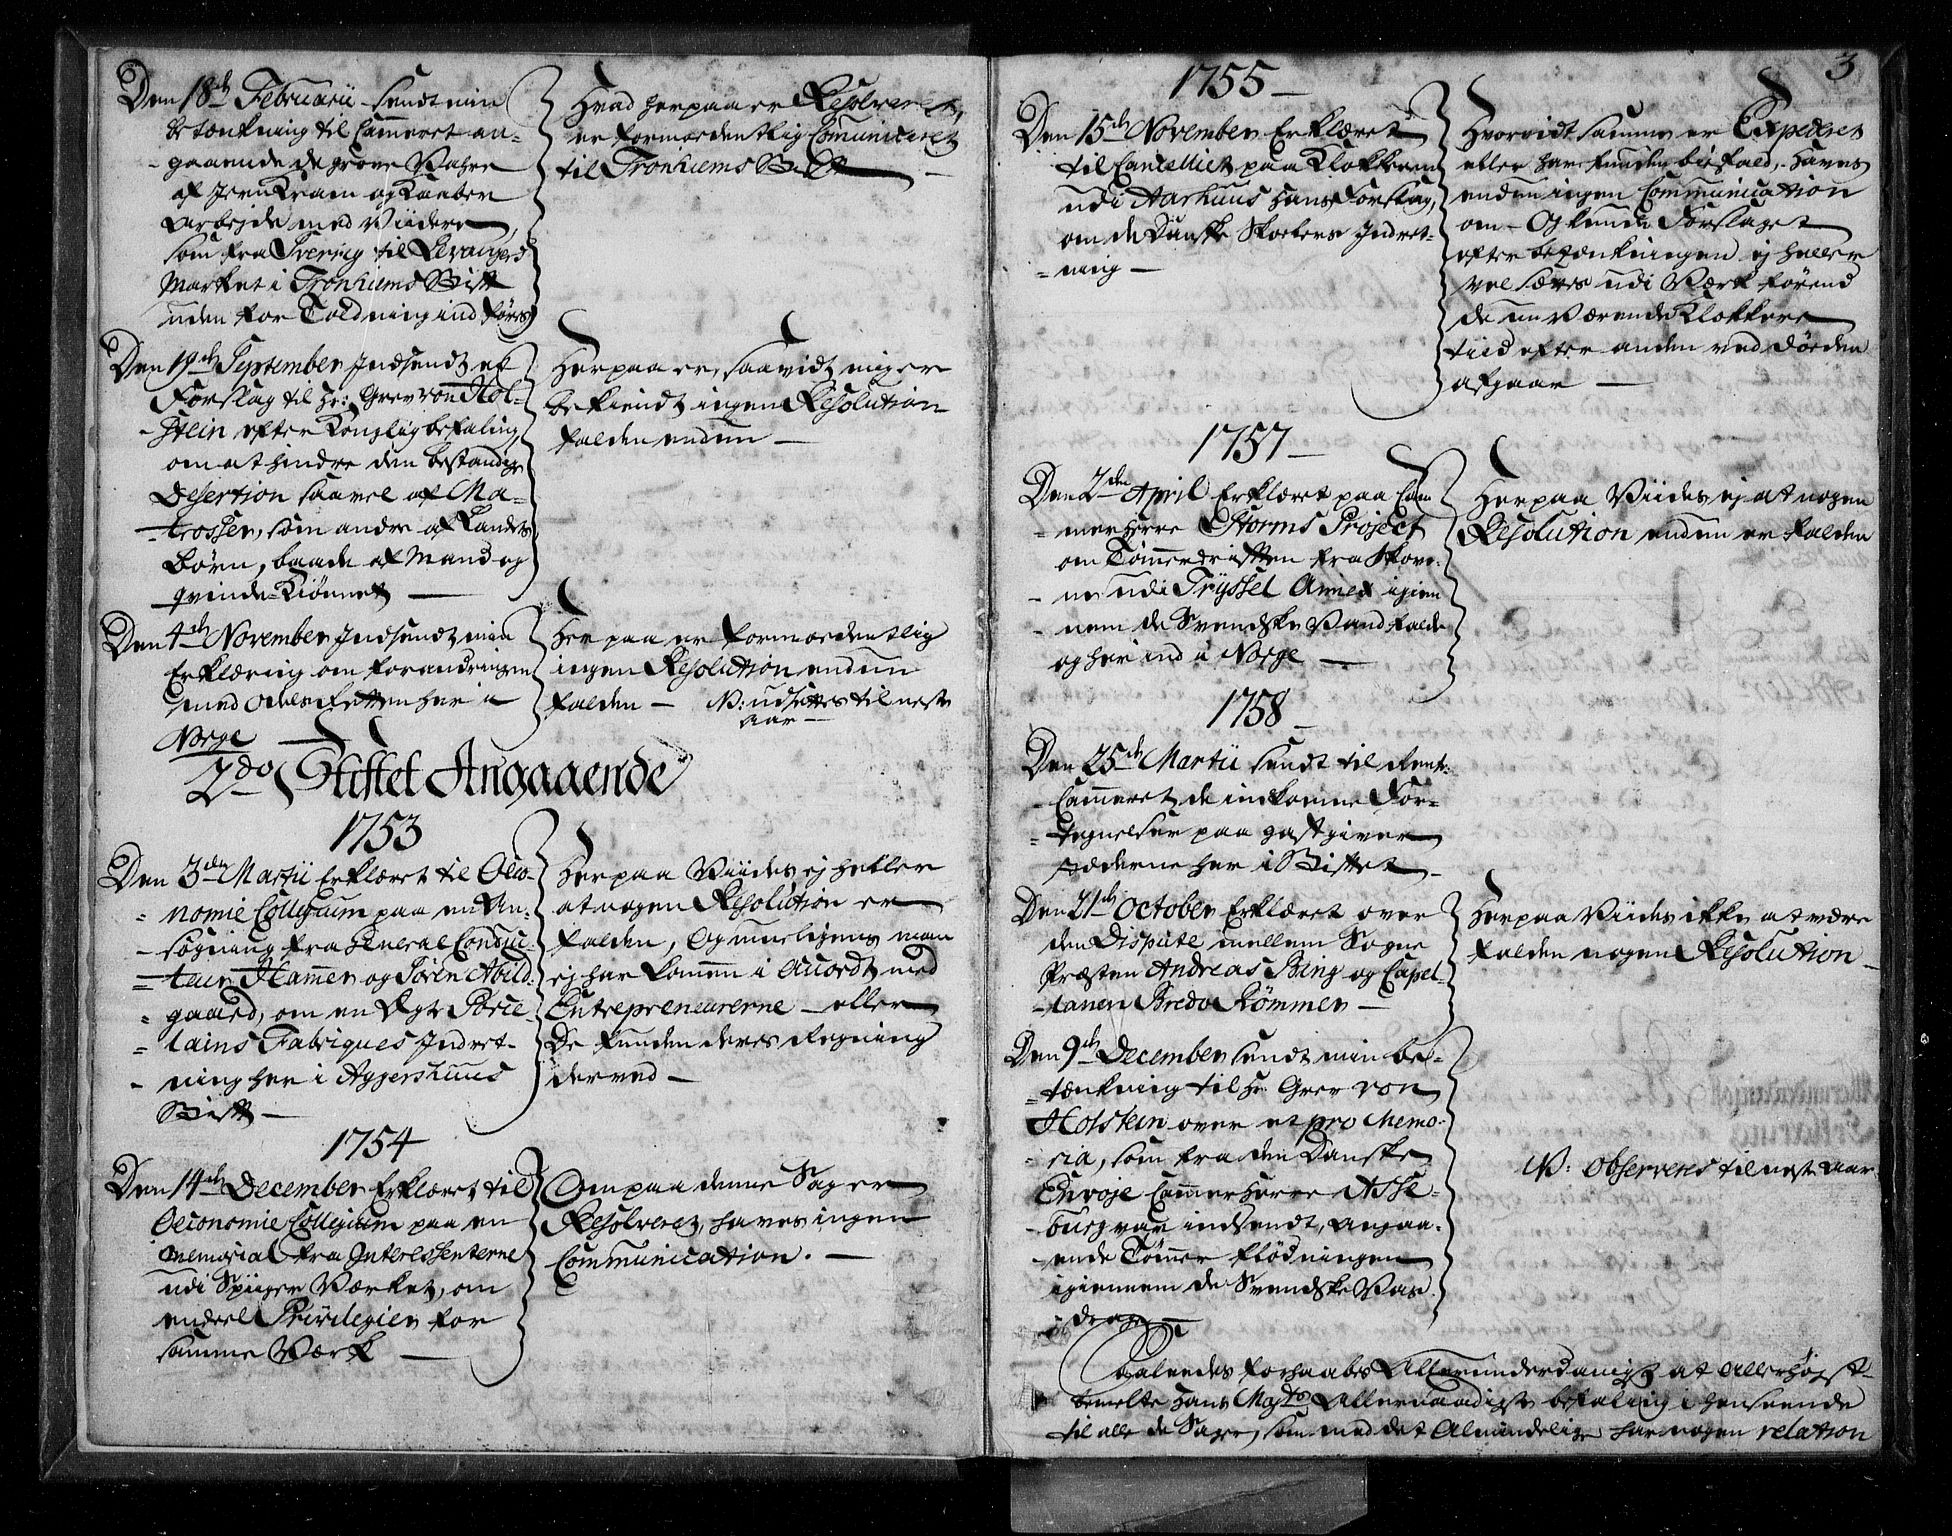 Den 18de Februarii sendt min
betænkning til Cammeret an-
gaaende de grove Vahre
af Jern Kram og Kaaber
Arbejde med Viidere
som fra Sverrig til Levangers
Market i Tronhiems Stift
uden for Toldning indføres
Hvad herpaa er Resolveret,
er formodentlig Communiceret
til Tronhiems Stift
Den 19de September Indsendt et
Forslag til Hr: Grev von Hol-
stein efter Konglig befaling,
om at hindre den bestandige
Desertion saavel af Ma-
trosser, som andre af Landets
børn, baade af Mand og
qvinde-Kiønnet —
Herpaa er, saavidt mig er
bekiendt ingen Resolution
falden endnu —
Den 4de November Indsendt min
Erklæring om forandringen
med Odels Retten her i
Norge
Her paa er formodentlig
ingen Resolution endnu
falden — N: udsættes til neste
Aar —
2do Stiftet Angaaende
1753
Den 3de Martii Erklæret til Oeco-
nomie Collegium paa en An-
søgning fra General Conduc-
teur Hammer og Søren Abild-
gaard, om en Ægte Porce-
lains Fabriques Indret-
ning her i Aggershuus
Stift —
Herpaa Viides ej heller
at nogen Resolution er
falden, Og mueligens man
ej har kommen i Accordt med
Entrepreneurerne — eller
De funden deres Regning
derved —
1754
Den 14de December Erklæret til
Oeconomie Collegium paa en
Memorial fra Interessenterne
udi Spiiger Værket, om
endeel Privilegier for
samme Værk —
Om paa denne Sag er
Resolveret, haves ingen
Communication. —
3
1755 —
Den 15de November Erklæret
til Cancelliet paa Klokkeren
udi Aarhuus hans Forslag,
om de Danske Skolers Indret-
ning —
Hvorvidt samme er Expederet
eller have funden bifald, haves
endnu ingen Communication
om — Og kunde Forslaget
efter betænkningen ej heller
vel sættes udi Værk førend
de nu Værende Klokkere
tiid efter anden ved Døden
afgaar —
1757 —
Den 2den April Erklæret paa Cam-
merHerre Storms Project
om Tømmerdriften fra Skove-
ne udi Tryssel Annex igien-
nem de Svendske Vandfalde
og her ind i Norge —
Herpaa Viides ej at nogen
Resolution endnu er falden
1758 —
Den 25de Martii sendt til Rente-
Cammeret de indkomne For-
tegnelser paa gastgiver
stæderne her i Stiftet —
Den 21de October Erklæret over
den Dispute mellem Sogne
Præsten Andreas Bing og Capel-
lanen Bredo Rømmen —
Herpaa Viides ikke at være
falden nogen Resolution —
Den 9de December sendt min be-
tænkning til Hr: Grev von
Holstein over et pro Memo-
ria, som fra den Danske
Envoje CammerHerre Asse-
burg var indsendt, angaa-
ende Tømmer flødningen
igiennem de Svendske Vas-
drage —
N: Observeres til nest Aar.
Saaledes forhaabes Allerunderdanigst at Allerhøjst-
bemelte Hans Maysts Allernaadigste befaling i henseende
til alle de Sager, som med det Almindelige har nogen relation